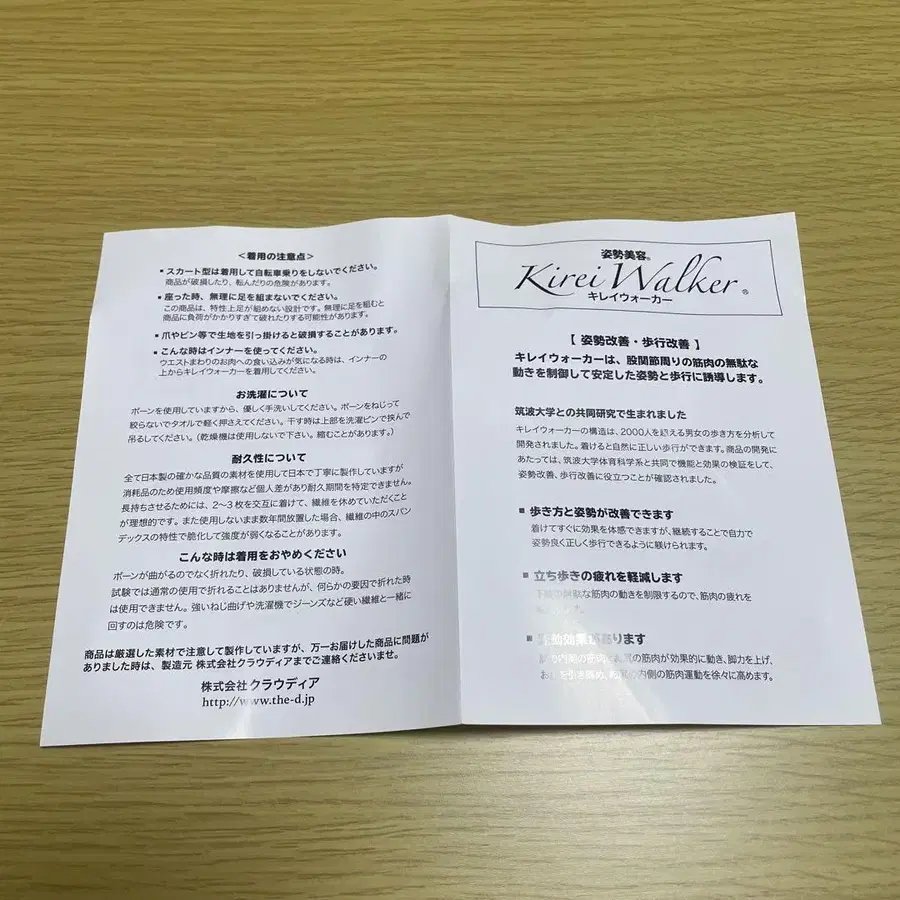 ＜着用の注意点＞
▪スカート型は着用して自転車乗りをしないでください。
商品が破損したり、転んだりの危険があります。
▪座った時、無理に足を組まないでください。
この商品は、特性上足が組めない設計です。無理に足を組むと
商品に負荷がかかりすぎて破れたりする可能性があります。
▪爪やピン等で生地を引っ掛けると破損することがあります。
▪こんな時はインナーを使ってください。
ウエストまわりのお肉への食い込みが気になる時は、インナーの
上からキレイウォーカーを着用してください。
お洗濯について
ボーンを使用していますから、優しく手洗いしてください。ボーンをねじって
絞らないでタオルで軽く押さえてください。干す時は上部を洗濯ピンで挟んで
吊るしてください。（乾燥機は使用しないで下さい。縮むことがあります。）
耐久性について
全て日本製の確かな品質の素材を使用して日本で丁寧に製作していますが
消耗品のため使用頻度や摩擦など個人差があり耐久期間を特定できません。
長持ちさせるためには、2〜3枚を交互に着けて、繊維を休めていただくこと
が理想的です。また使用しないまま数年間放置した場合、繊維の中のスパン
デックスの特性で脆化して強度が弱くなることがあります。
こんな時は着用をおやめください
ボーンが曲がるのでなく折れたり、破損している状態の時。
試験では通常の使用で折れることはありませんが、何らかの要因で折れた時
は使用できません。強いねじ曲げや洗濯機でジーンズなど硬い繊維と一緒に
回すのは危険です。
商品は厳選した素材で注意して製作していますが、万一お届けした商品に問題が
ありました時は、製造元 株式会社クラウディアまでご連絡くださいませ。
株式会社クラウディア
http://www.the-d.jp
姿勢美容®
Kirei Walker®
キレイウォーカー
【 姿勢改善・歩行改善 】
キレイウォーカーは、股関節周りの筋肉の無駄な
動きを制御して安定した姿勢と歩行に誘導します。
筑波大学との共同研究で生まれました
キレイウォーカーの構造は、2000人を超える男女の歩き方を分析して
開発されました。着けると自然に正しい歩行ができます。商品の開発に
あたっては、筑波大学体育科学系と共同で機能と効果の検証をして、
姿勢改善、歩行改善に役立つことが確認されました。
▪歩き方と姿勢が改善できます
着けてすぐに効果を体感できますが、継続することで自力で
姿勢良く正しく歩行できるように躾けられます。
▪立ち歩きの疲れを軽減します
無駄な筋肉の動きを制限するので、筋肉の疲れを
効果があります
の筋肉が効果的に動き、脚力を上げ、
内側の筋肉運動を徐々に高めます。